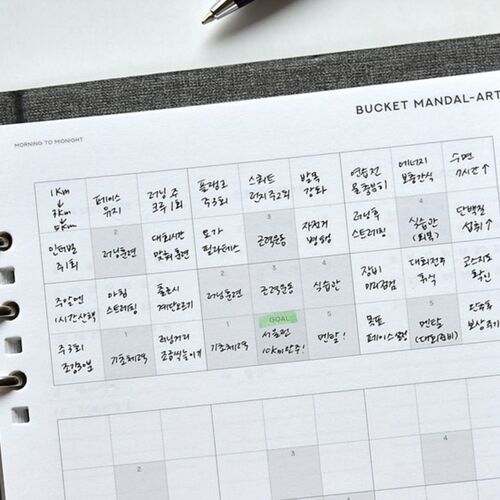 BUCKET MANDAL-ART
MORNING TO MIDNIGHT
1km
↓
3km
↓
5km
페이스
유지
러닝 주
3회
플랭크
주3회
스쿼트
런지 주2회
발목
강화
연습전
물 충분히
에너지
보충간식
수면
7시간↑
인터벌
주1회
2
러닝훈련
대회시간
맞춰 훈련
요가
필라테스
3
근력운동
자전거
병행
러닝후
스트레칭
4
식습관
(회복)
단백질
섭취↑
주말엔
1시간 산책
아침
스트레칭
2
러닝훈련
3
근력운동
4
식습관
장비
미리점검
대회전주
휴식
코스지도
확인
주3회
조깅30분
1
기초체력
러닝거리
조금씩 늘이기
1
기초체력
GOAL
서울런
10km 완주!
5
멘탈!
목표
페이스 설정
5
멘탈
(대회준비)
완주후
보상주기
2
3
4